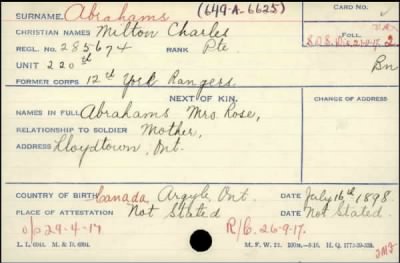 SURNAME. Abrahams (649-A-6625) CARD NO.
CHRISTIAN NAMES Milton Charles
REGL. NO. 285674 RANK Pte. FOLL.
UNIT 220th 2
FORMER CORPS 12th York Rangers. Bn
NEXT OF KIN. CHANGE OF ADDRESS
NAMES IN FULL Abrahams Mrs Rose,
RELATIONSHIP TO SOLDIER Mother,
ADDRESS Lloydtown, Ont.
COUNTRY OF BIRTH Canada Argyle, Ont. DATE July 16th 1898.
PLACE OF ATTESTATION Not Stated DATE Not Stated.
o/o 29-4-17 R/C. 26-9-17.
L. L. 6944. M. & D. 6994. M. F. W. 22.